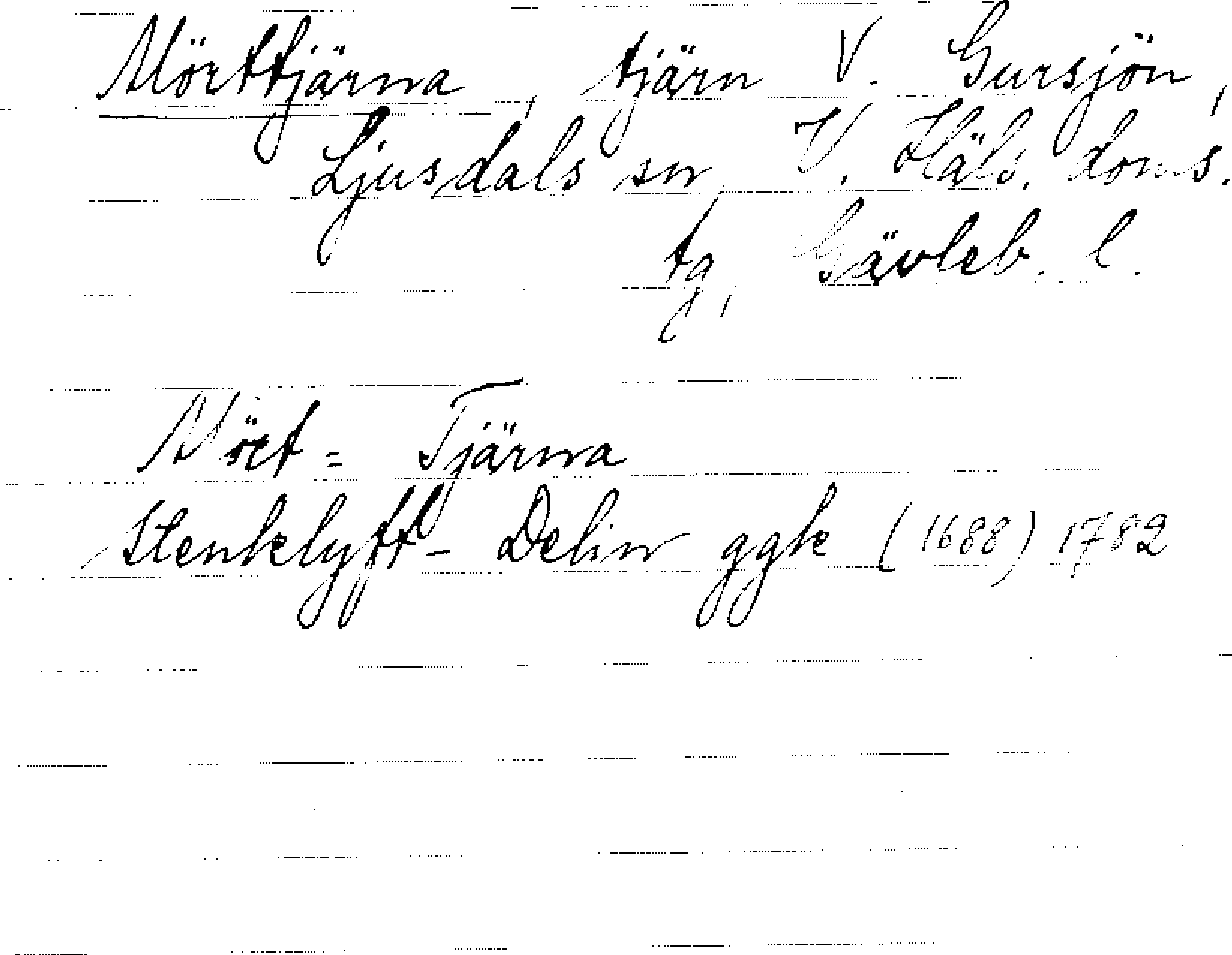 Mörttjärna, tjärn V. Gursjön,
Ljusdals sn, V. Häls. doms.
tg, Gävleb. l.
Mört= Tjärna
Stenklyft- Delin ggk (1688) 1782